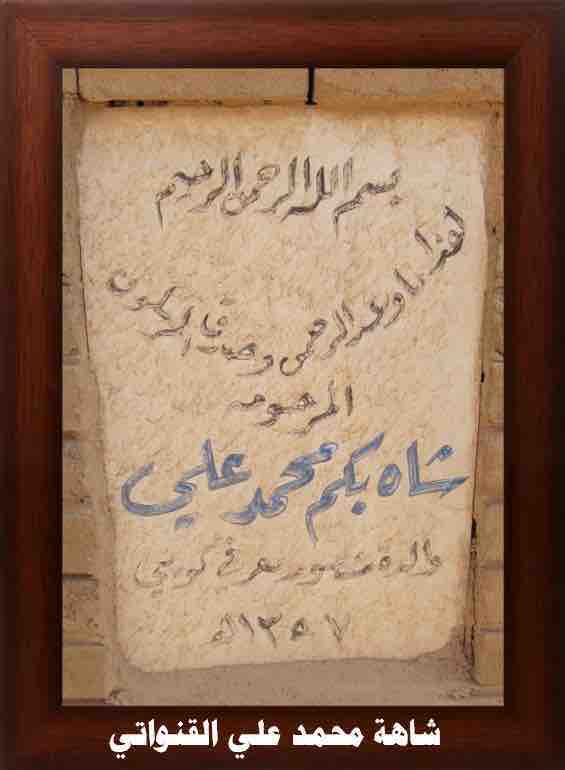 بسم الله الرحمن الرحيم
هذا ما وعد الرحمن وصدق المرسلون
المرحومه
شاه بكم محمد علي
والدة
١٣٥٧ه
شاهة محمد علي القنواتي